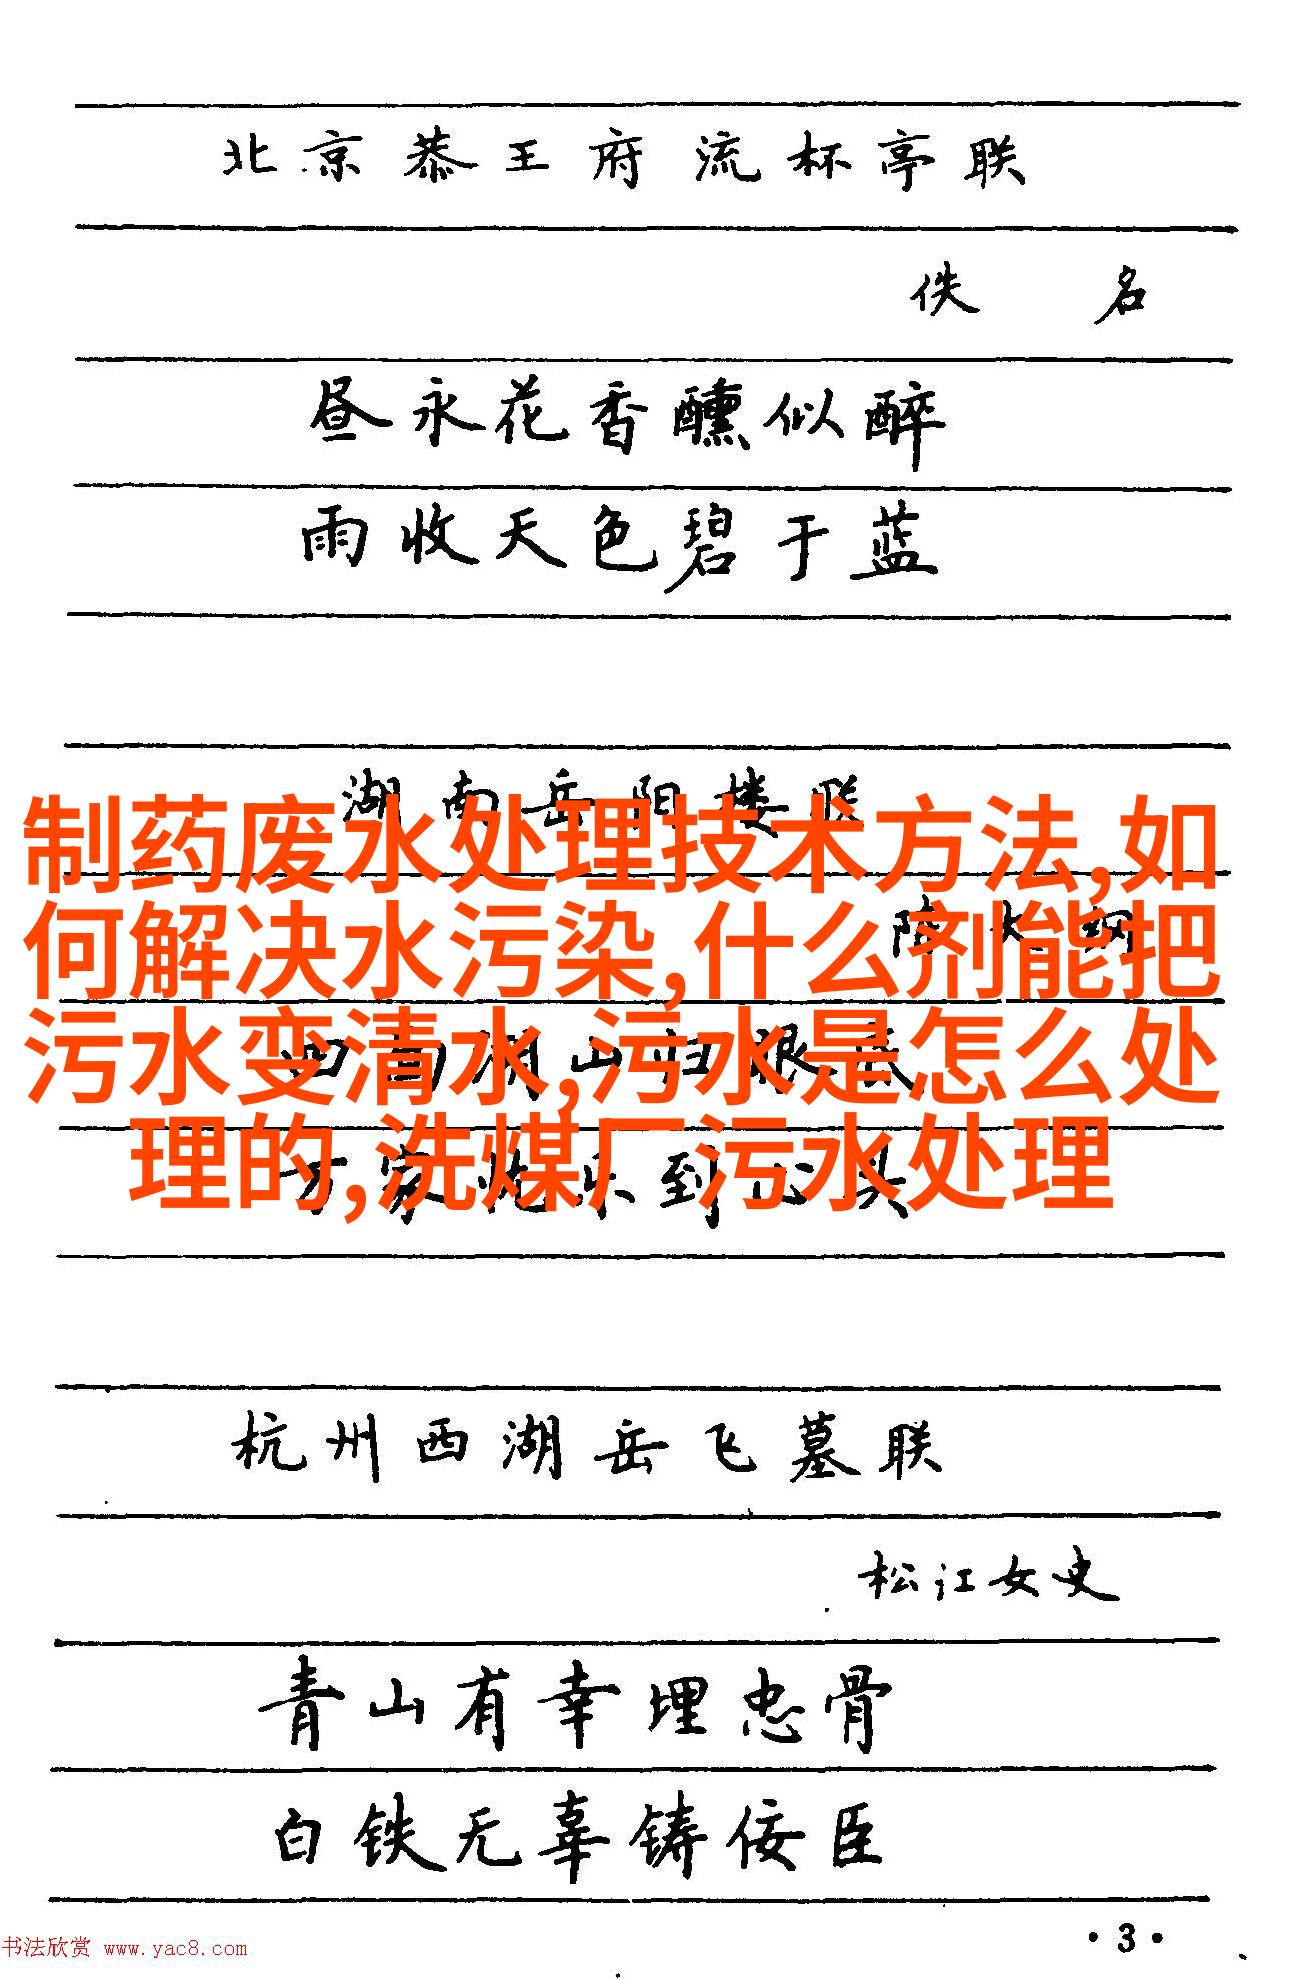 北京恭王府流杯亭联
佚名
昼永花香醺似醉
雨收天色碧于蓝
湖南岳阳楼联
制药废水处理技术方法,如
陈大纲
何解决水污染,什么剂能把
污水变清水,污水是怎么处
理的,洗煤厂污水处理
杭州西湖岳飞墓联
松江女史
青山有幸埋忠骨
白铁无辜铸佞臣
书法欣赏 www.yac8.com
·3·